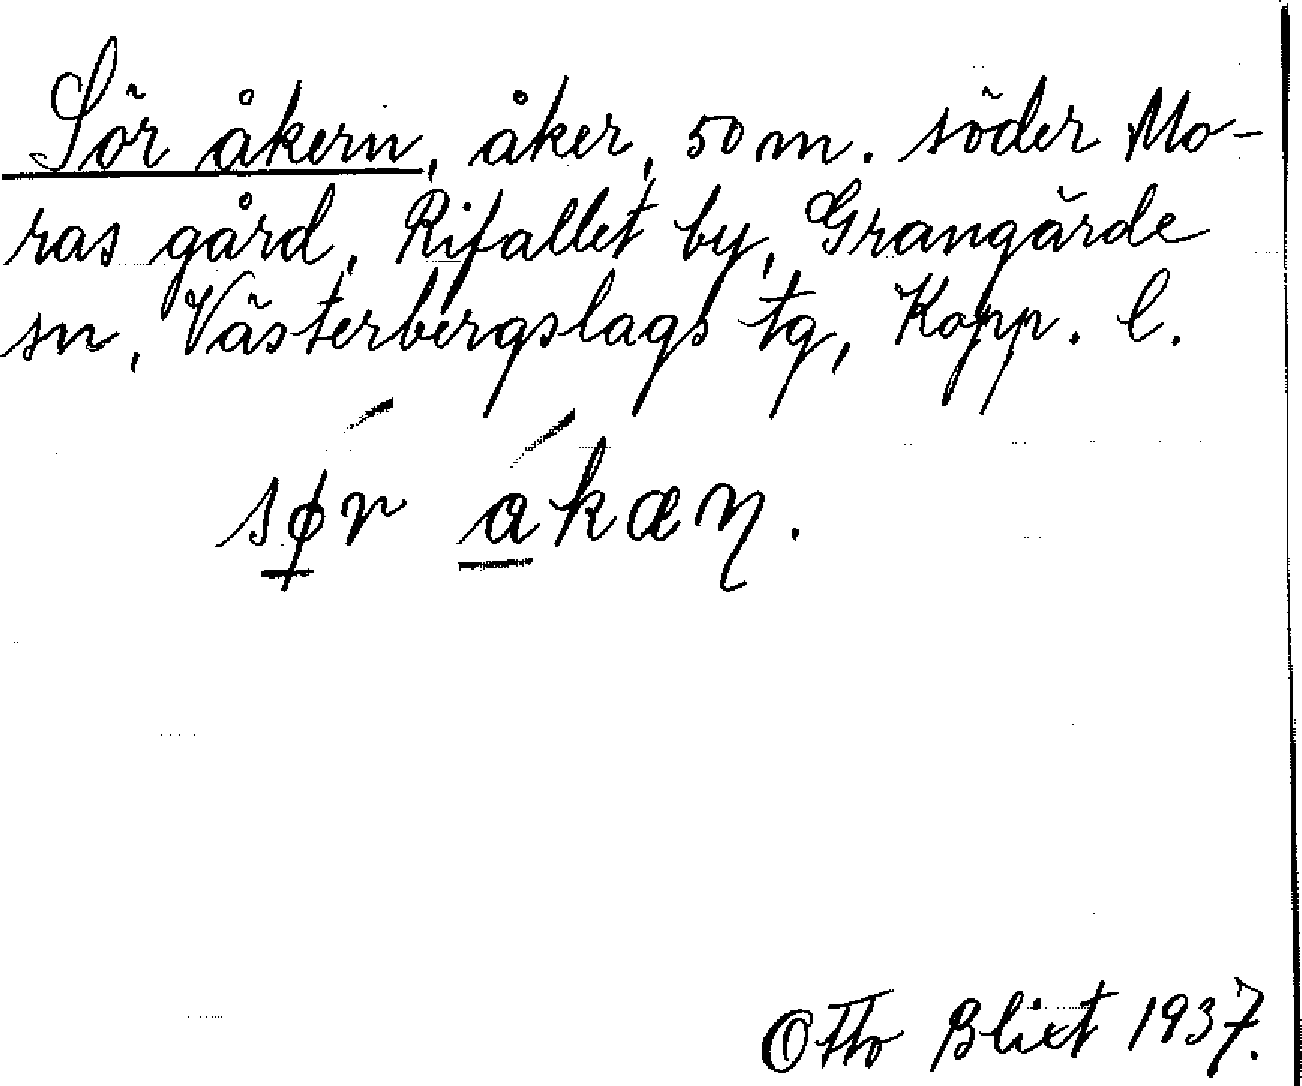 Sör åkern, åker, 50 m. söder Mo-
ras gård, Rifallet by, Grangärde
sn, Västerbergslags tg, Kopp. l.
sǿr ákæn.
Otto Blixt 1937.